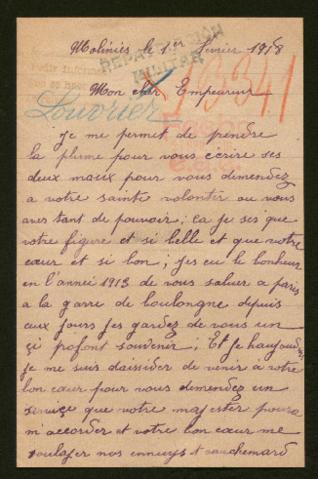 Molinies le 1er février 1918
REPATRIACION
MILITAR
Mon cher Empeureur
Louvrier
je me permet de prendre
la plume pour vous ecrire ses
deux maux pour vous demendez
a votre sainte volonter ou vous
avez tant de pouvoir; ca je ses que
votre figure et si belle et que votre
cœur et si bon; j'es eu le bonheur
en l'année 1913 de vous saluer a paris
a la garre de boulongne depuis
ceux jours j'es gardez de vous un
çi profont souvenir; Et je haujourd
je me suis daisider de venir à votre
bon cœur pour vous demendez un
serviçe que votre majester poura
m'accorder et votre bon cœur me
soulajer nos ennuys et cauchemard